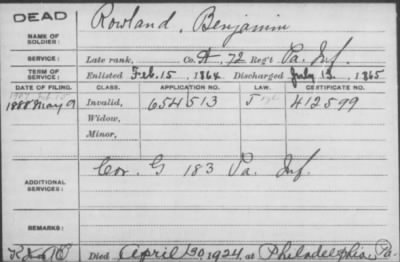 DEAD
Rowland, Benjamin
NAME OF SOLDIER:
SERVICE: Late rank, Co. A, 72 Reg't Pa. Inf.
TERM OF SERVICE: Enlisted Feb. 15, 1864 Discharged July 13, 1865
DATE OF FILING. CLASS. APPLICATION NO. LAW. CERTIFICATE NO.
1888 May 9 Invalid, 654513 412599
Widow,
Minor,
ADDITIONAL SERVICES: Co. G 183 Pa. Inf.
REMARKS:
Died April 30, 1924, at Philadelphia Pa.